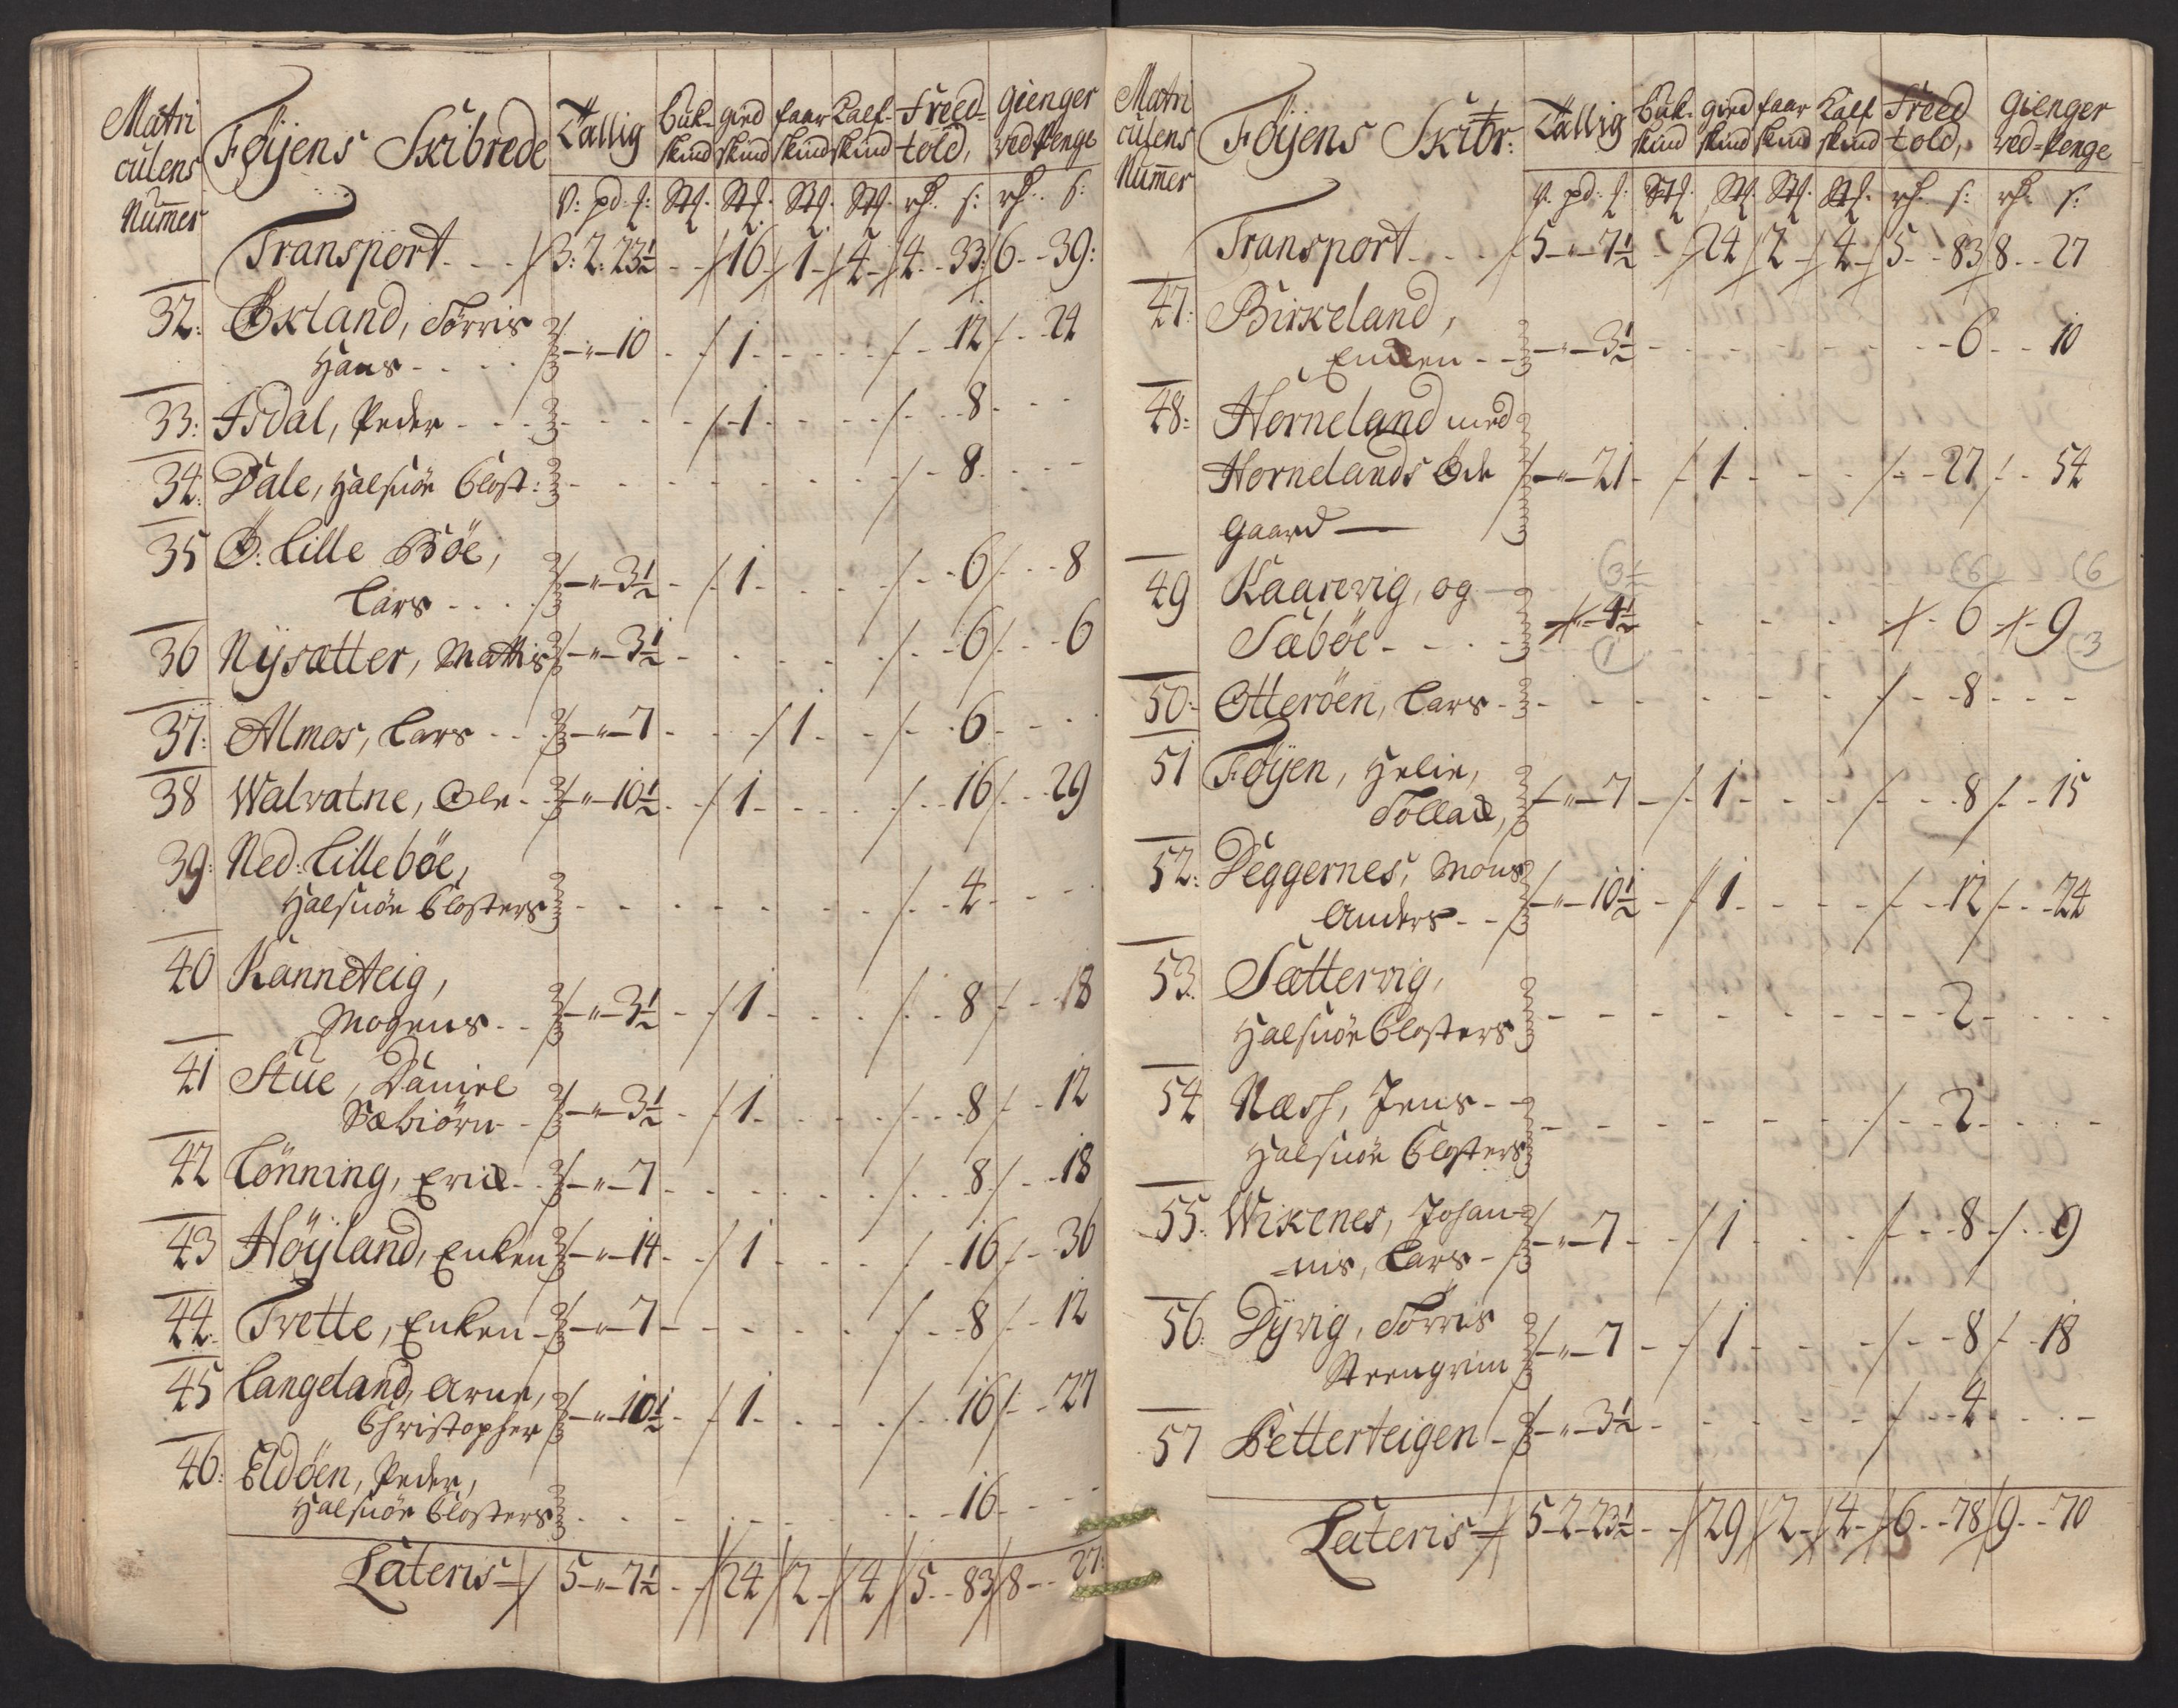 Matri
culens
Numer
Føÿens Skibrede
Tallig
buk-
skind
gied
skind
faar
skind
Calf-
skind
Freed-
told,
gienger
ved Penge
V: pd: ſ: Stſ. Stſ. Stſ. Stſ. rſ. ſ: rſ. ſ:
Transport - - - 3: 2: 23½ - - 16 - 1 - 4 - 4 - - 33: 6 - - 39:
32: Økland, Torris
Hans - - - - - " - 10 - - 1 - - - - - - 12 - - 24
33: Isdal, Peder - - - - - - - 1 - - - - - 8 - - -
34: Dale, Halsnöe Clost: - - - - - - - - - 8 - - - -
35 Ø: Lille Böe,
Lars - - - - - " - 3½ - - 1 - - - - - - 6 - - - 8
36 Nÿsætter, Mattis - " - 3½ - - - - - - - 6 - - - 6
37: Almos, Lars - - - - " - 7 - - - 1 - - - - 6 - - -
38 Walvatne, Ole - - - " - 10½ - - 1 - - - - - - 16 - - - 29
39: Ned: Lillebőe,
Halsnöe Closters - - - - - - - - - 4 - - -
40 Kanneteig,
Mogens - - - " - 3½ - - 1 - - - - - 8 - - 18
41 Stue, Daniel
Sæbiörn - - " - 3½ - - 1 - - - - - - 8 - - 12
42 Lönning, Erick - - - " - 7 - - - - - - - - 8 - - - 18
43 Höÿland, Enken - " - 14 - - 1 - - - - - 16 - - 36
44: Tvette, Enken - - " - 7 - - - - - - - - 8 - - 12
45 Langeland, Arne,
Christopher - " - 10½ - - 1 - - - - - 16 - - 27
46: Eldöen, Peder,
Halsnöe Closters - - - - - - - - - 16 - - - -
Lateris 5 - " - 7½ - - 24 - 2 - 4 - 5 - - 83 8 - - 27:
Matri
culens
Numer
Føÿens Skibr:
Tallig
buk-
skind
gied
skind
faar
skind
Calf
skind
Freed
told,
gienger
ved-Penge
V. pd: ſ: Stſ. Stſ. Stſ. Stſ. rſ. ſ: rſ. ſ:
Transport - - - 5 - " - 7½ - 24 2 - 4 - 5 - - 83 8 - - 27
47: Birkeland,
Encken - - - " - 3½ - - - - - - - - 6 - - 10
48: Horneland med
Hornelands Øde - " - 21 - - 1 - - - - - 27 - - 54
Gaard —
49 Kaarevig, og 3½ 6 6
Sæböe - - - - - 4½ - - - - - 6 - - 9
1 3
50: Otteröen, Lars - - - - - - - - - - 8 - - -
51 Føÿen, Helie,
Tollack, - " - 7 - - 1 - - - - - - 8 - - 15
52: Deggernes, Mons
Anders - - - " - 10½ - 1 - - - - - - 12 - - - 24
53. Sættervig,
Halsnöe Closters - - - - - - - - - 2 - - - -
54 Næss, Jens - -
Halsnöe Closters - - - - - - - - - 2 - - - -
55. Wikenes, Johan-
=nis, Lars - - " - 7 - - 1 - - - - - - 8 - - 9
56. Dÿvig, Torris
Steengrim - " - 7 - - 1 - - - - - - 8 - - 18
57 Petterteigen - - " - 3½ - - - - - - - - 4 - - - -
Lateris 5 - 2 - 23½ - - 29 2 - 4 - 6 - - 78 9 - - 70